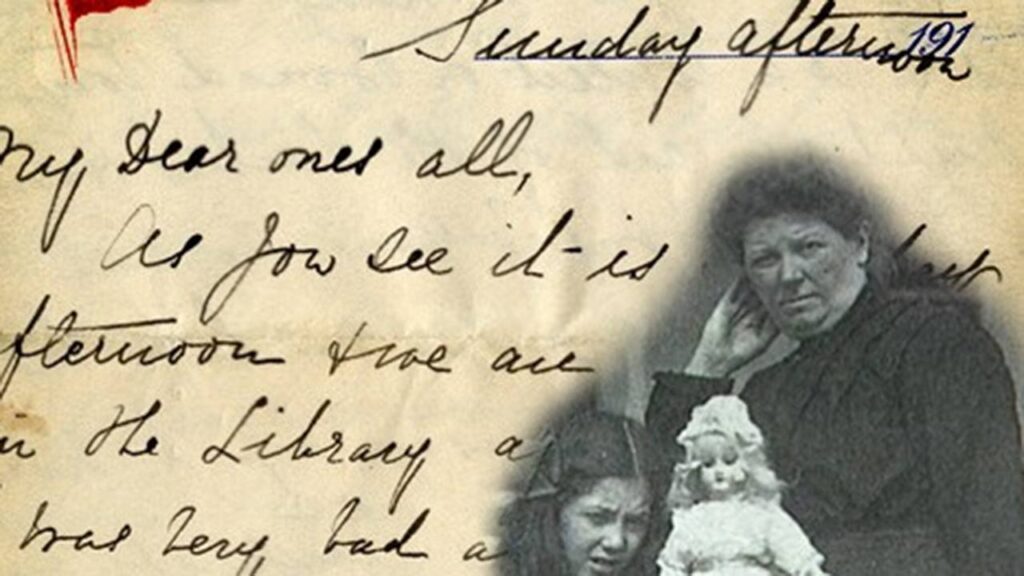 Sunday afternoon
191
My Dear ones all,
As you see it is
afternoon & we are
in the Library
was very bad